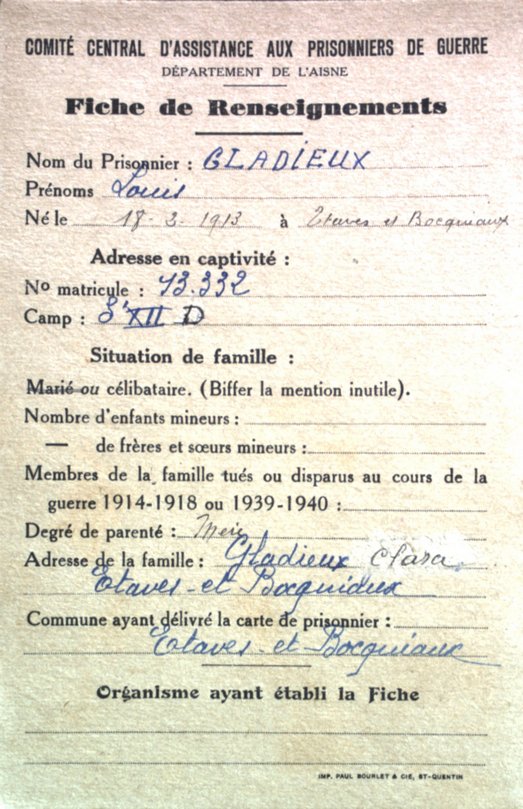 COMITÉ CENTRAL D'ASSISTANCE AUX PRISONNIERS DE GUERRE
DÉPARTEMENT DE L'AISNE
Fiche de Renseignements
Nom du Prisonnier : GLADIEUX
Prénoms Louis
Né le 18-3-1913 à Etaves et Bocquiaux
Adresse en captivité :
No matricule : 13.332
Camp : S' XII D
Situation de famille :
Marié ou célibataire. (Biffer la mention inutile).
Nombre d'enfants mineurs :
— de frères et sœurs mineurs :
Membres de la famille tués ou disparus au cours de la
guerre 1914-1918 ou 1939-1940 :
Degré de parenté : Mère
Adresse de la famille : Gladieux Clara
Etaves-et Bocquiaux
Commune ayant délivré la carte de prisonnier :
Etaves-et-Bocquiaux
Organisme ayant établi la Fiche
IMP. PAUL BOURLET & CIE, ST-QUENTIN